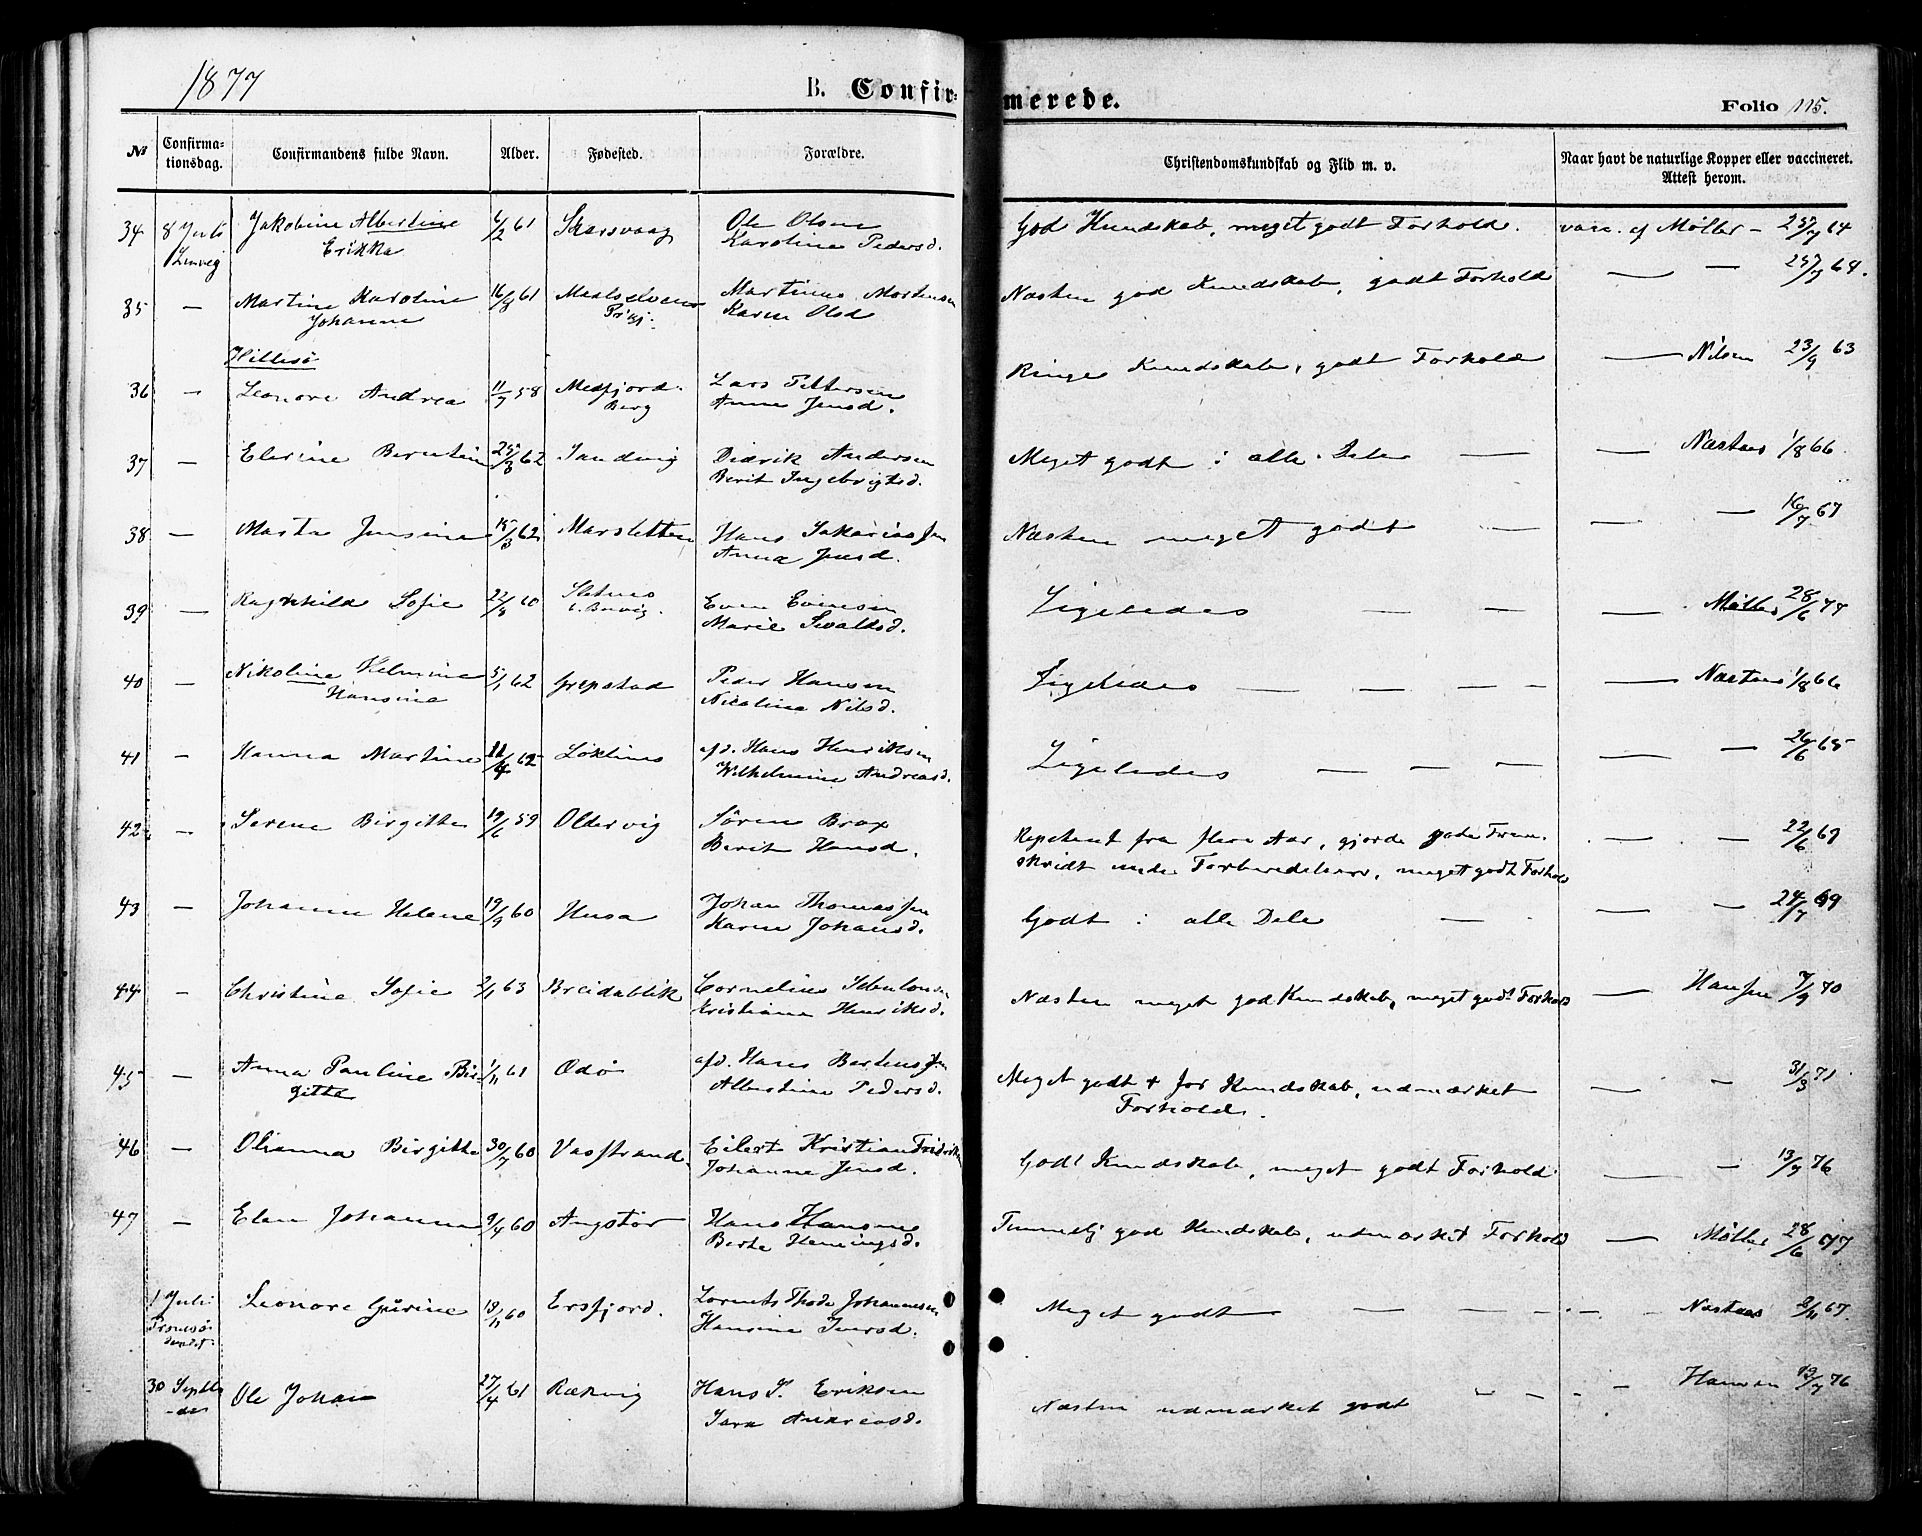 1877
B. Confir-
merede.
Folio 115.
№ Confirma-tionsdag. Confirmandens fulde Navn. Alder. Fødested. Forældre. Christendomskundskab og Flid m. v. Naar havt de naturlige Kopper eller vaccineret. Attest herom.
34 8 Juli Jakobine Albertine 6/2 61 Skarsvaag Ole Olsen God Kundskab, meget godt Forhold. vacc. af Møller - 25/7 64
Lenvig Erikka Karoline Pedersd.
35 — Martine Karoline 16/9 61 Maalselvens Martinus Mortensen Næsten god Kundskab, godt Forhold — — 25/7 64.
Johanne Prgj. Karen Olsd
Hillesø
36 — Leonore Andrea 11/7 58 Medfjord Lars Pettersen Ringe Kundskab, godt Forhold — Nilsen 23/9 63
Berg Anne Jensd.
37 — Elerine Berntine 25/3 62 Sandvig Didrik Andersen Meget godt i alle Dele — — Næstaas 1/8 66
Berit Ingebrigtsd.
38 — Marta Jensine 15/3 62 Marsletten Hans Sakariassen Næsten meget godt — — — 16/7 67
Anna Jensd.
39 — Ragnhild Sofie 22/8 60 Sletnes Even Evensen Ligeledes — — — Møller 28/6 74
Marie Sivaltsd.
40 — Nikoline Helmine 5/1 62 Grepstad Peder Hansen Ligeledes — — — — — Næstaas 1/8 66
Hansine Nicoline Nilsd.
41 — Hanna Martine 11/4 62 Løklines afd. Hans Henriksen Ligeledes — — — — — 26/6 65
Wilhelmine Andreasd.
42 — Serene Birgitte 19/6 59 Oldervig Søren Brox Repetent fra flere Aar, gjorde gode Frem- — — 22/6 69
Berit Hansd. skridt under Forberedelsen, meget godt Forhold
43 — Johanne Helene 19/9 60 Husa Johan Thomassen Godt i alle Dele — — — 24/7 69
Karen Johansd.
44 — Christine Sofie 2/1 63 Breidablik Cornelius Næsten meget god Kundskab, meget godt Forhold — Hansen 7/9 70
Kristiane Henriksd.
45 — Anna Pauline Bir- 1/11 61 Ødø afd. Hans Berthussen Meget godt + for Kundskab, udmærket — — 31/3 71
gitte Albertine Pedersd. Forhold.
46 — Olianna Birgitte 30/7 60 Vasstrand Eilert Kristian Fredriksen God Kundskab, meget godt Forhold — — 13/7 76
Johanne Jensd.
47 — Elen Johanna 9/4 60 Angstør Hans Hansen Temmelig god Kundskab, udmærket Forhold — Møller 28/6 77
Berte Hemingsd.
1 Juli Leonore Gurine 18/11 60 Ersfjord. Lorents Thode Johannesen Meget godt — — — — — Næstaas 2/11 67.
Tromsø- Hansine Iversd.
sundet
30 Septbr Ole Johan 27/4 61 Rækvig Hans P. Eriksen Næsten udmærket godt — — — — Hansen 13/7 76
Sara Andreasd.